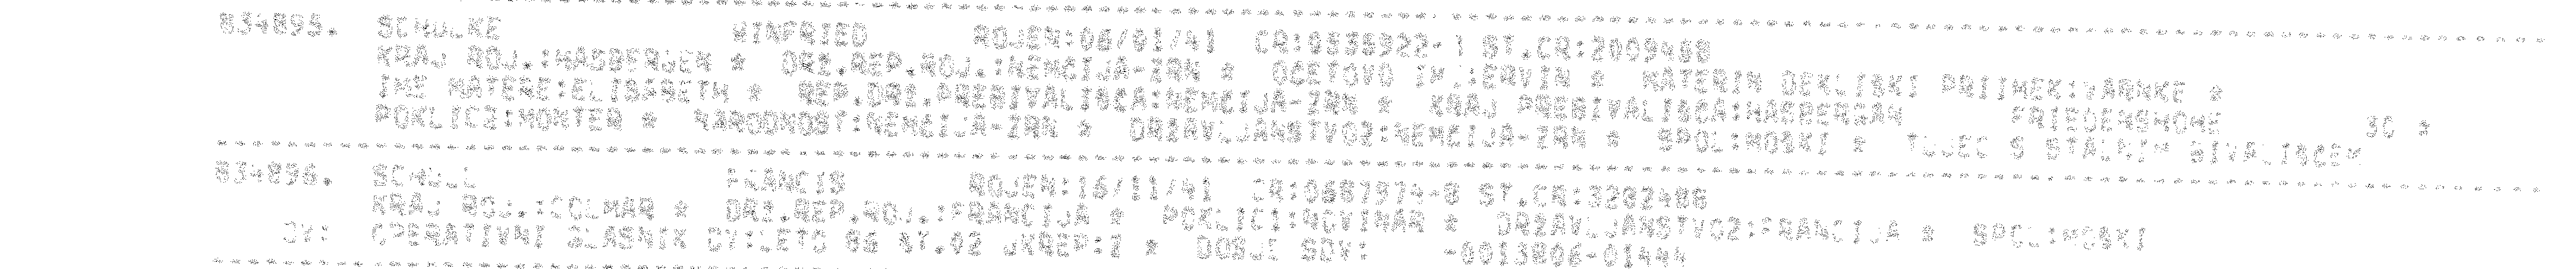 834895. SCHULKE WINFRIED ROJEN:06/01/41 CR:0535922-1 ST.CR:2009468
KRAJ ROJ.:HASBERGEN * DRZ.REP.ROJ.:NEMCIJA-ZRN * OCETOVO IME:ERVIN * MATERIN DEKLISKI PRIIMEK:VARNKE *
IME MATERE:ELISABETH * REP.DRZ.PREBIVALISCA:NEMCIJA-ZRN * KRAJ PREBIVALISCA:HASBERGAN FRIEDENSHOHE 30 *
POKLIC2:MONTER * NARODNOST:NEMCIJA-ZRN * DRZAVLJANSTVO2:NEMCIJA-ZRN * SPOL:MOSKI * TUJEC S STALNIM BIVALISCEM
834896. SCHULL FRANCIS ROJEN:16/11/41 CR:0687974-8 ST.CR:3202486
KRAJ ROJ.:COLMAR * DRZ.REP.ROJ.:FRANCIJA * POKLIC1:NOVINAR * DRZAVLJANSTVO2:FRANCIJA * SPOL:MOSKI
OV: OPERATIVNI LETO 86 ST.02 * DOSJE SDV: -0013806-01444